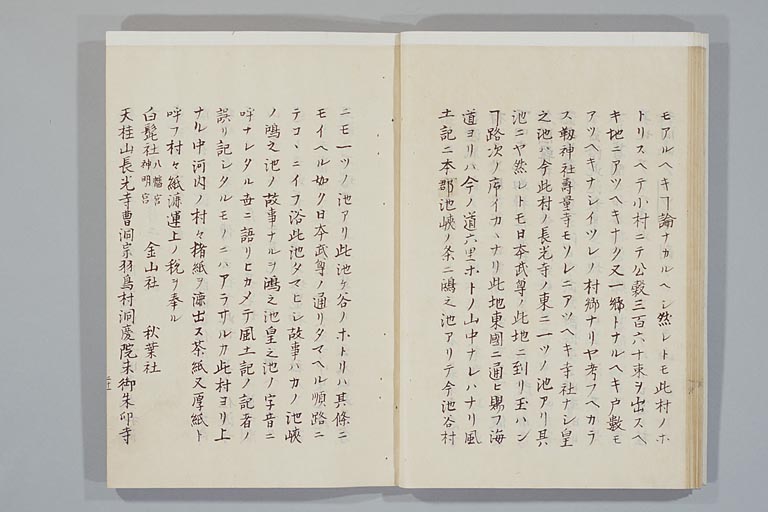 モアルヘキヿ論ナカルヘシ然レトモ此村ノホ
トリスヘテ小村ニテ公穀三百六十束ヲ出スヘ
キ地ニアツヘキナク又一郷トナルヘキ戸数モ
アツヘキナシイツレノ村郷ナリヤ考フヘカラ
ス靱神社壽量寺モソレニアツヘキ寺社ナシ皇
之池ハ今此村ノ長光寺ノ東ニ一ツノ池アリ其
池ニヤ然レトモ日本武尊ノ此地ニ到リ玉ハン
ヿ路次ノ序イカヽナリ此地東國ニ通ヒ賜フ海
道ヨリハ今ノ道六里ホトノ山中ナレハナリ風
土記ニ本郡池峽ノ条ニ鴻之池アリテ今池谷村
ニモ一ツノ池アリ此池ケ谷ノホトリハ其條ニ
モイヘル如ク日本武尊ノ通リタマヘル順路ニ
テコヽニイフ浴此池タマヒシ故事ハカノ池峽
ノ鴻之池ノ故事ナルヲ鴻之池皇之池ノ字音ニ
呼ナレタル世ニ語リヒカメテ風土記ノ記者ノ
誤リ記シタルモノニハアラサルカ此村ヨリ上
ナル中河内ノ村々楮紙ヲ漉出ス茶紙又厚紙ト
呼フ村々紙漉運上ノ税ヲ奉ル
白髭社 八幡宮 神明宮 金山社 秋葉社
天桂山長光寺曹洞宗羽鳥村洞慶院末御朱印寺